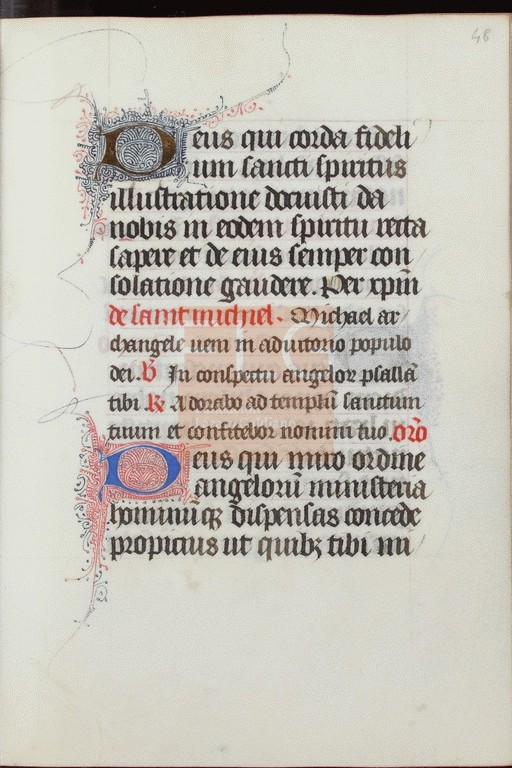 48
Deus qui corda fideli
um sancti spiritus
illustratione docuisti da
nobis in eodem spiritu recta
sapere et de eius semper con
solatione gaudere. Per xpm̅
de saint michiel. Michael ar
changele veni in adiutorio populo
dei. V̅ In conspectu angeloꝝ psallā
tibi R̅ Adorabo ad templū sanctum
tuum et confitebor nomini tuo. or̅o
Deus qui miro ordine
angelorū ministeria
hominūqꝫ dispensas concede
propicius ut quibꝫ tibi mi